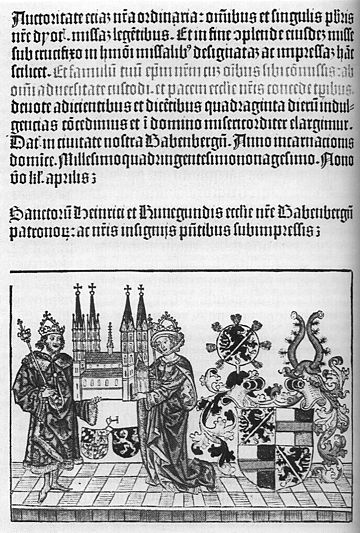 Auctoritate etiaʒ nr̃a ordinaria: om̃ibus et singulis pb̃ris
nr̃e dyoꝛ̃. missaʒ legẽtibus. Et in fine cõplende eiusdeʒ misse
sub crucifixo in hmõi missalib᷒ designataʒ ac impressaʒ hãc
scilicet. Et famulũ tuũ ep̃m nr̃m cũ oĩbus sibi cõmissis: ab
om̃i aduersitate custodi. et pacem ecclesie nr̃is concede tp̃ibus.
deuote adicientibus et dicẽtibus quadraginta dierũ indul
gencias cõcedimus et ĩ domino misericorditer elargimur.
Dat̃. in ciuitate nostra Babenbergñ. Anno incarnacionis
domĩce. Millesimoquadringentesimononagesimo. Nono
ṽo kl̃. aprilis ʒ
Sanctorũ Heinrici et Kunegundis ecclesie nr̃e Babenbergñ
patronoꝝ: ac nr̃is insignijs pñtibus subimpressis ʒ